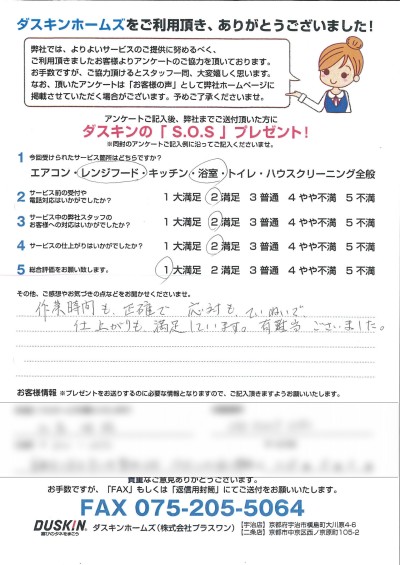 ダスキンホームズをご利用頂き、ありがとうございました!
弊社では、よりよいサービスのご提供に努めるべく、
ご利用頂きましたお客様よりアンケートのご協力を頂いております。
お手数ですが、ご協力頂けるとスタッフ一同、大変嬉しく思います。
なお、頂いたアンケートは「お客様の声」として弊社ホームページに
掲載させていただく場合がございます。予めご了承くださいませ。
アンケートご記入後、弊社までご送付頂いた方に
ダスキンの「S.O.S」プレゼント!
※同封のアンケートご記入例に沿ってご記入くださいませ。
1 今回受けられたサービス箇所はどちらですか?
エアコン・レンジフード・キッチン・浴室・トイレ・ハウスクリーニング全般
2 サービス前の受付や
電話対応はいかがでしたか? 1 大満足 2 満足 3 普通 4 やや不満 5 不満
3 サービス中の弊社スタッフの
お客様への対応はいかがでしたか? 1 大満足 2 満足 3 普通 4 やや不満 5 不満
4 サービスの仕上がりはいかがでしたか? 1 大満足 2 満足 3 普通 4 やや不満 5 不満
5 総合評価をお願い致します。 1 大満足 2 満足 3 普通 4 やや不満 5 不満
その他、ご感想やお気づきの点などをお聞かせくださいませ。
作業時間も、正確で 応対も、ていねいで、
仕上がりも、満足しています。有難当ございました。
お客様情報 ※プレゼントをお送りするのに必要な情報となりますので、ご記入頂きますようお願いいたします。
貴重なご意見ありがとうございます。
お手数ですが、「FAX」もしくは「返信用封筒」にてご送付をお願いいたします。
FAX 075-205-5064
DUSKIN 喜びのタネをまこう ダスキンホームズ(株式会社プラスワン)
【宇治店】京都府宇治市槇島町大川原4-6
【二条店】京都市中京区西ノ京原町105-2